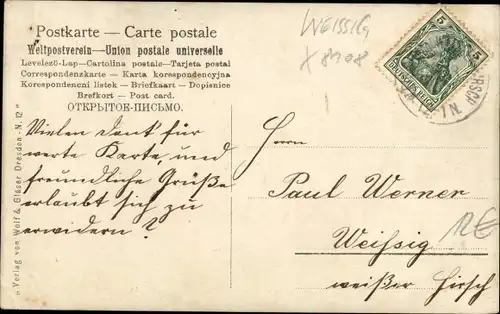 Postkarte — Carte postale
Weltpostverein—Union postale universelle
Levelező-Lap—Cartolina postale—Tarjeta postal
Correspondenzkarte - Karta korespondencyjna
Korespondencni listek - Briefkaart - Dopisnice
Brefkort - Post card.
ОТКРЫТОЕ-ПИСЬМО.
WEISSIG
X 8908
5 5
DEUTSCHES REICH
HIRSCH
Vielen Dank für
werte Karte, und
freundliche Grüße
erlaubt sich zu
erwidern?
Herrn
Paul Werner
Weißig
weißer Hirsch
12€
Verlag von Wolf & Gläser Dresden-N. 12